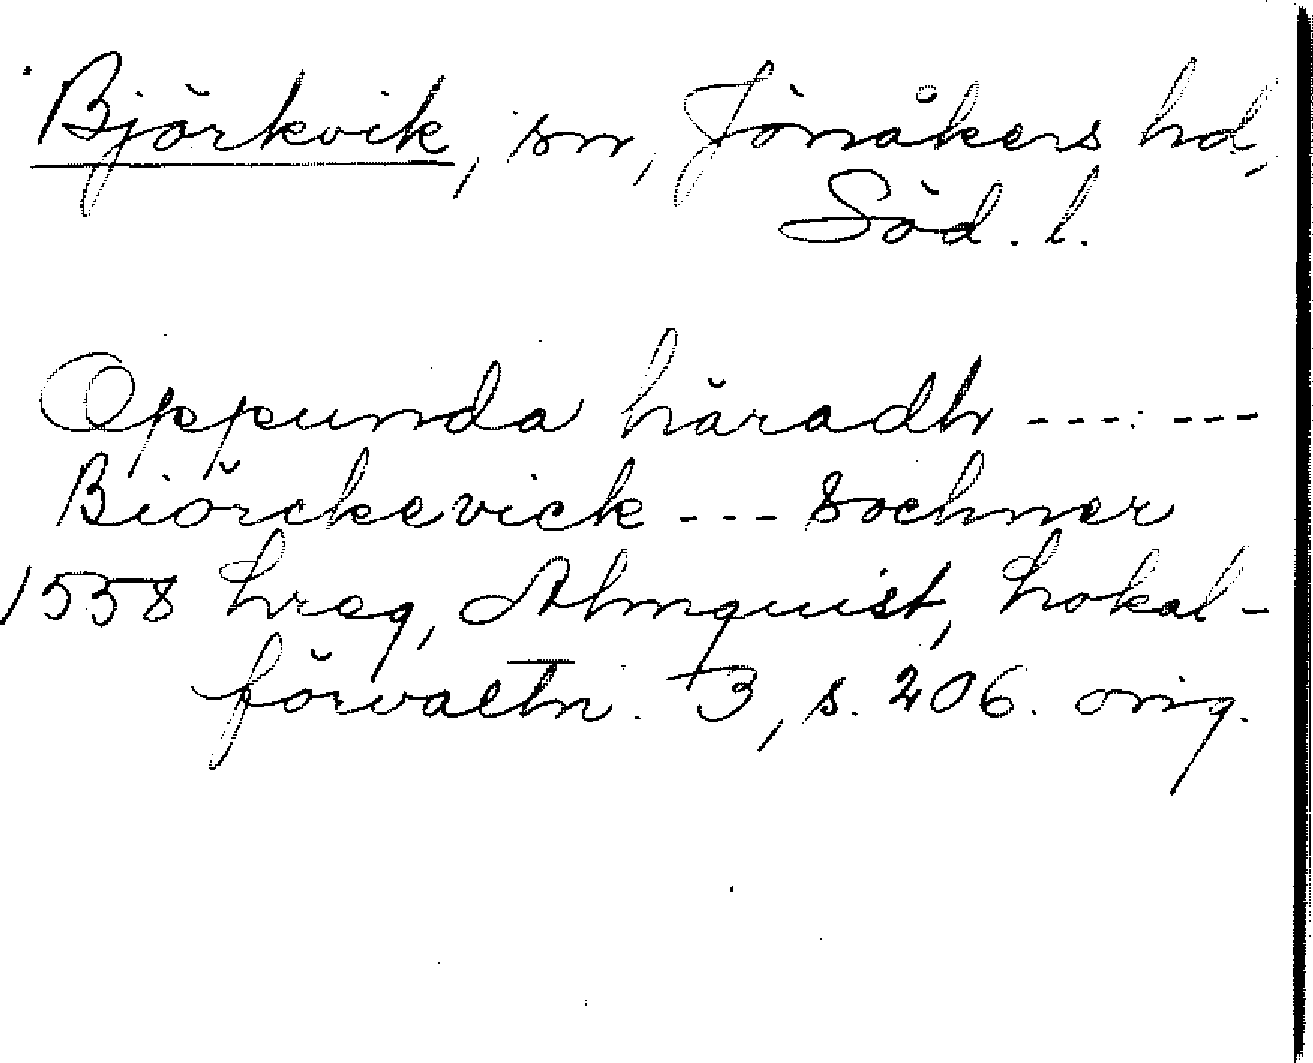 Björkvik, sn, Jönåkers hd,
Söd. l.
Oppunda häradh --- ---
Biörckevick --- sochner
1558 hreg, Almquist, Lokal-
förvaltn. 3, s. 206. orig.